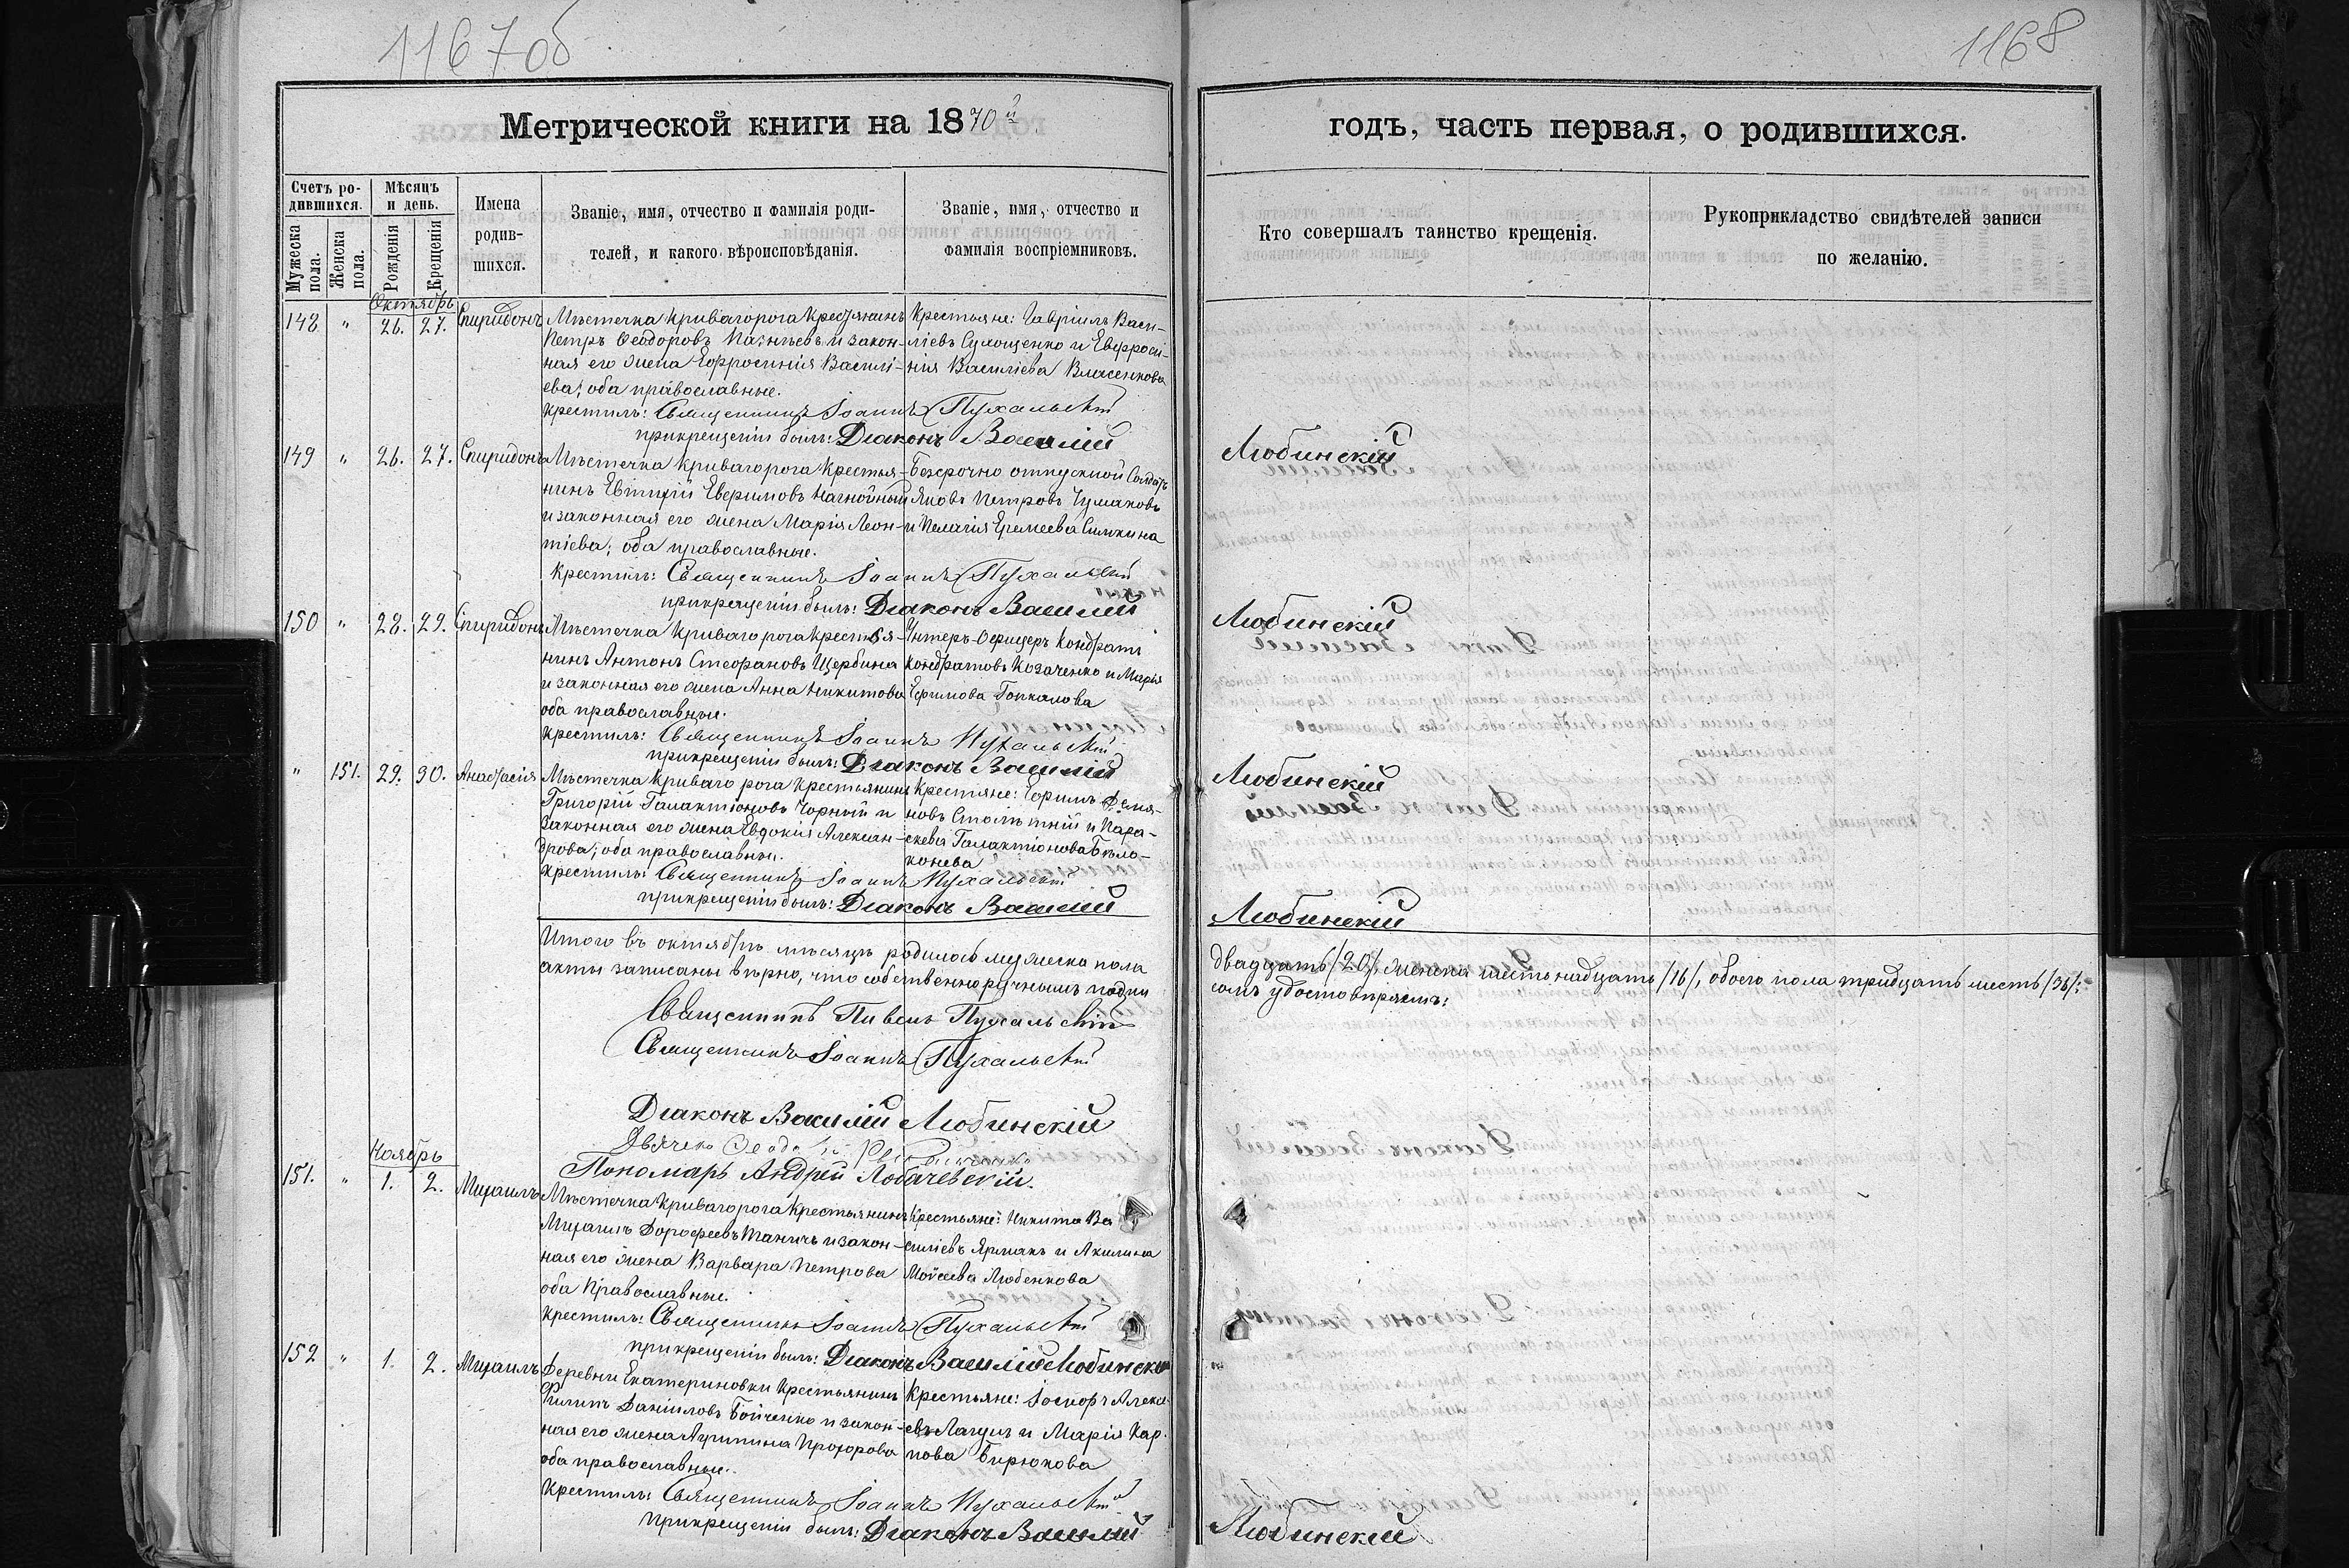 1167об
1168
Метрической книги на 1870й
годъ, часть первая, о родившихся.
Счетъ родившихся.
Мужеска пола.
Женска пола.
Мѣсяцъ и день.
Рожденія
Крещенія
Имена родившихся.
Званіе, имя, отчество и фамилія родителей, и какого вѣроисповѣданія.
Званіе, имя, отчество и фамилія воспріемниковъ.
Кто совершалъ таинство крещенія.
Рукоприкладство свидѣтелей записи по желанію.
Октябрь
148 " 26. 27. Спиридонъ
Мѣстечка Криваго рога Крестьянинъ
Петръ Ѳеодоровъ и закон-
ная его жена Ефросинія Василі-
ева; оба православные.
Крестьяне: Гавріилъ Васи-
ліевъ Сулощенко и Евфроси-
нія Василіева Власенкова
Крестилъ: Священникъ Іоаннъ Пухальскій
при крещеніи былъ: Діаконъ Василій Любинскій
149 " 26. 27. Спиридонъ
Мѣстечка Криваго рога Крестья-
нинъ Евтихій Евфимовъ Нагнойный
и законная его жена Марія Леон-
тіева; оба православные.
Безсрочно отпускной Солдатъ
Яковъ Петровъ Чумаковъ
и Пелагія Еремеева Симкина
Крестилъ: Священникъ Іоаннъ Пухальскій
при крещеніи былъ: Діаконъ Василій Любинскій
150 " 28. 29. Спиридонъ
Мѣстечка Криваго рога Крестья-
нинъ Антонъ Стефановъ Щербина
и законная его жена Анна Никитова
оба православные.
Унтеръ-Офицеръ Кондратъ
Кондратовъ Козаченко и Марья
Ефимова Гопкалова
Крестилъ: Священникъ Іоаннъ Пухальскій
при крещеніи былъ: Діаконъ Василій Любинскій
" 151. 29. 30. Анастасія
Мѣстечка Криваго рога Крестьянинъ
Григорій Галактіоновъ Чорный и
законная его жена Евдокія Алексан-
дрова; оба православные.
Крестьяне: Ефимъ Демя-
новъ Столѣтній и Пара-
скевія Галактіонова Бѣло-
конева
Крестилъ: Священникъ Іоаннъ Пухальскій
при крещеніи былъ: Діаконъ Василій Любинскій
Итого въ октябрѣ мѣсяцѣ родилось мужеска пола двадцать /20/, женска шестьнадцать /16/, обоего пола тридцать шесть /36/:
акты записаны вѣрно, что собственноручнымъ подписомъ удостовѣряемъ:
Священникъ Павелъ Пухальскій
Священникъ Іоаннъ Пухальскій
Діаконъ Василій Любинскій
Пономарь Андрей Лобачевскій.
Ноябрь
151. " 1. 2. Михаилъ
Мѣстечка Криваго рога Крестьянинъ
Михаилъ Дорофеевъ Таничъ и закон-
ная его жена Варвара Петрова
оба Православные.
Крестьяне: Никита Ва
силіевъ Ярмакъ и Акилина
Моісеева Любенкова
Крестилъ: Священникъ Іоаннъ Пухальскій
при крещеніи былъ: Діаконъ Василій Любинскій
152 " 1. 2. Михаилъ
Деревни Екатериновки Крестьянинъ
Филипъ Даніиловъ Бойченко и закон-
ная его жена Агрипина Прохорова
оба православные.
Крестьяне: Іосифъ Алексе-
евъ и Марія Кар-
пова Бирюкова
Крестилъ: Священникъ Іоаннъ Пухальскій
при крещеніи былъ: Діаконъ Василій Любинскій